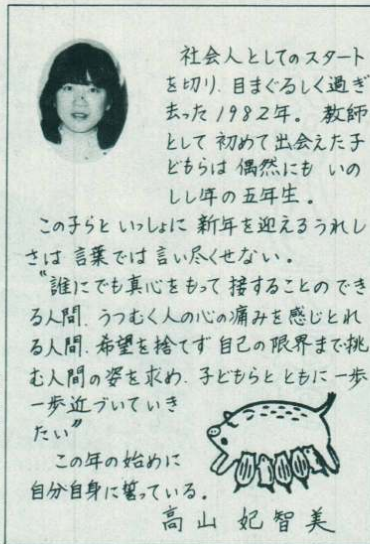 社会人としてのスタート
を切り、目まぐるしく過ぎ
去った1982年。教師
として初めて出会えた子
どもらは偶然にもいの
しし年の五年生。
この子らといっしょに新年を迎えるうれし
さは言葉では言い尽くせない。
“誰にでも真心をもって接することのでき
る人間、うつむく人の心の痛みを感じとれ
る人間、希望を捨てず自己の限界まで挑
む人間の姿を求め、子どもらとともに一歩
一歩近づいていき
たい”
この年の始めに
自分自身に誓っている。
高山妃智美